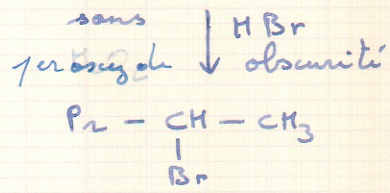 sans HBr
peroxyde obscurité
Pr — CH — CH3
|
Br